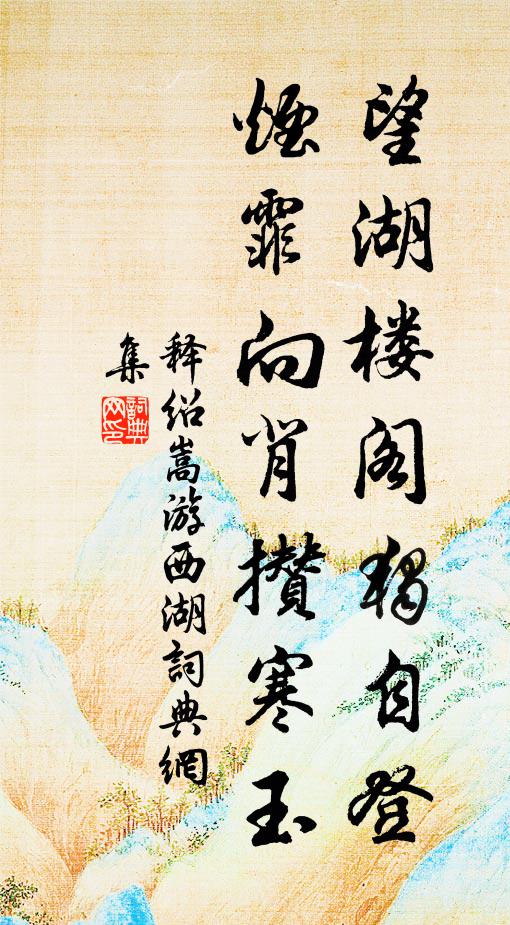 望湖楼阁独自登
烟霏向背攒寒玉
释绍嵩游西湖詞典網
集
詞典网印